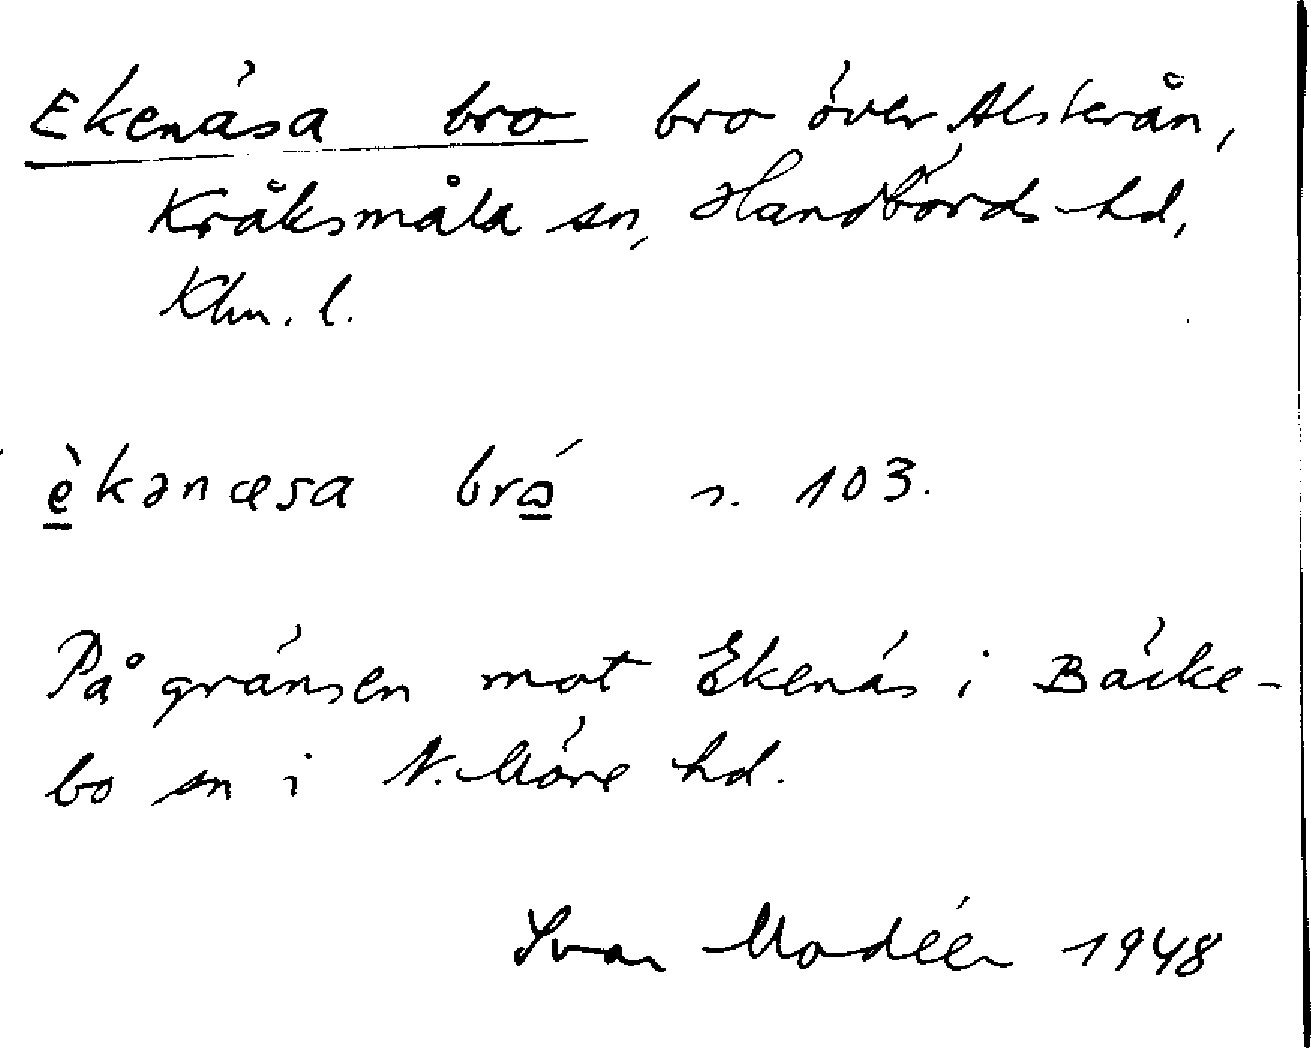 Ekenäsa bro bro över Alsterån,
Kråksmåla sn, Handbörds hd,
Klm. l.
èkənæsa bró s. 103.
På gränsen mot Ekenäs i Bäcke-
bo sn i N. Möre hd.
Ivar Modéer 1948